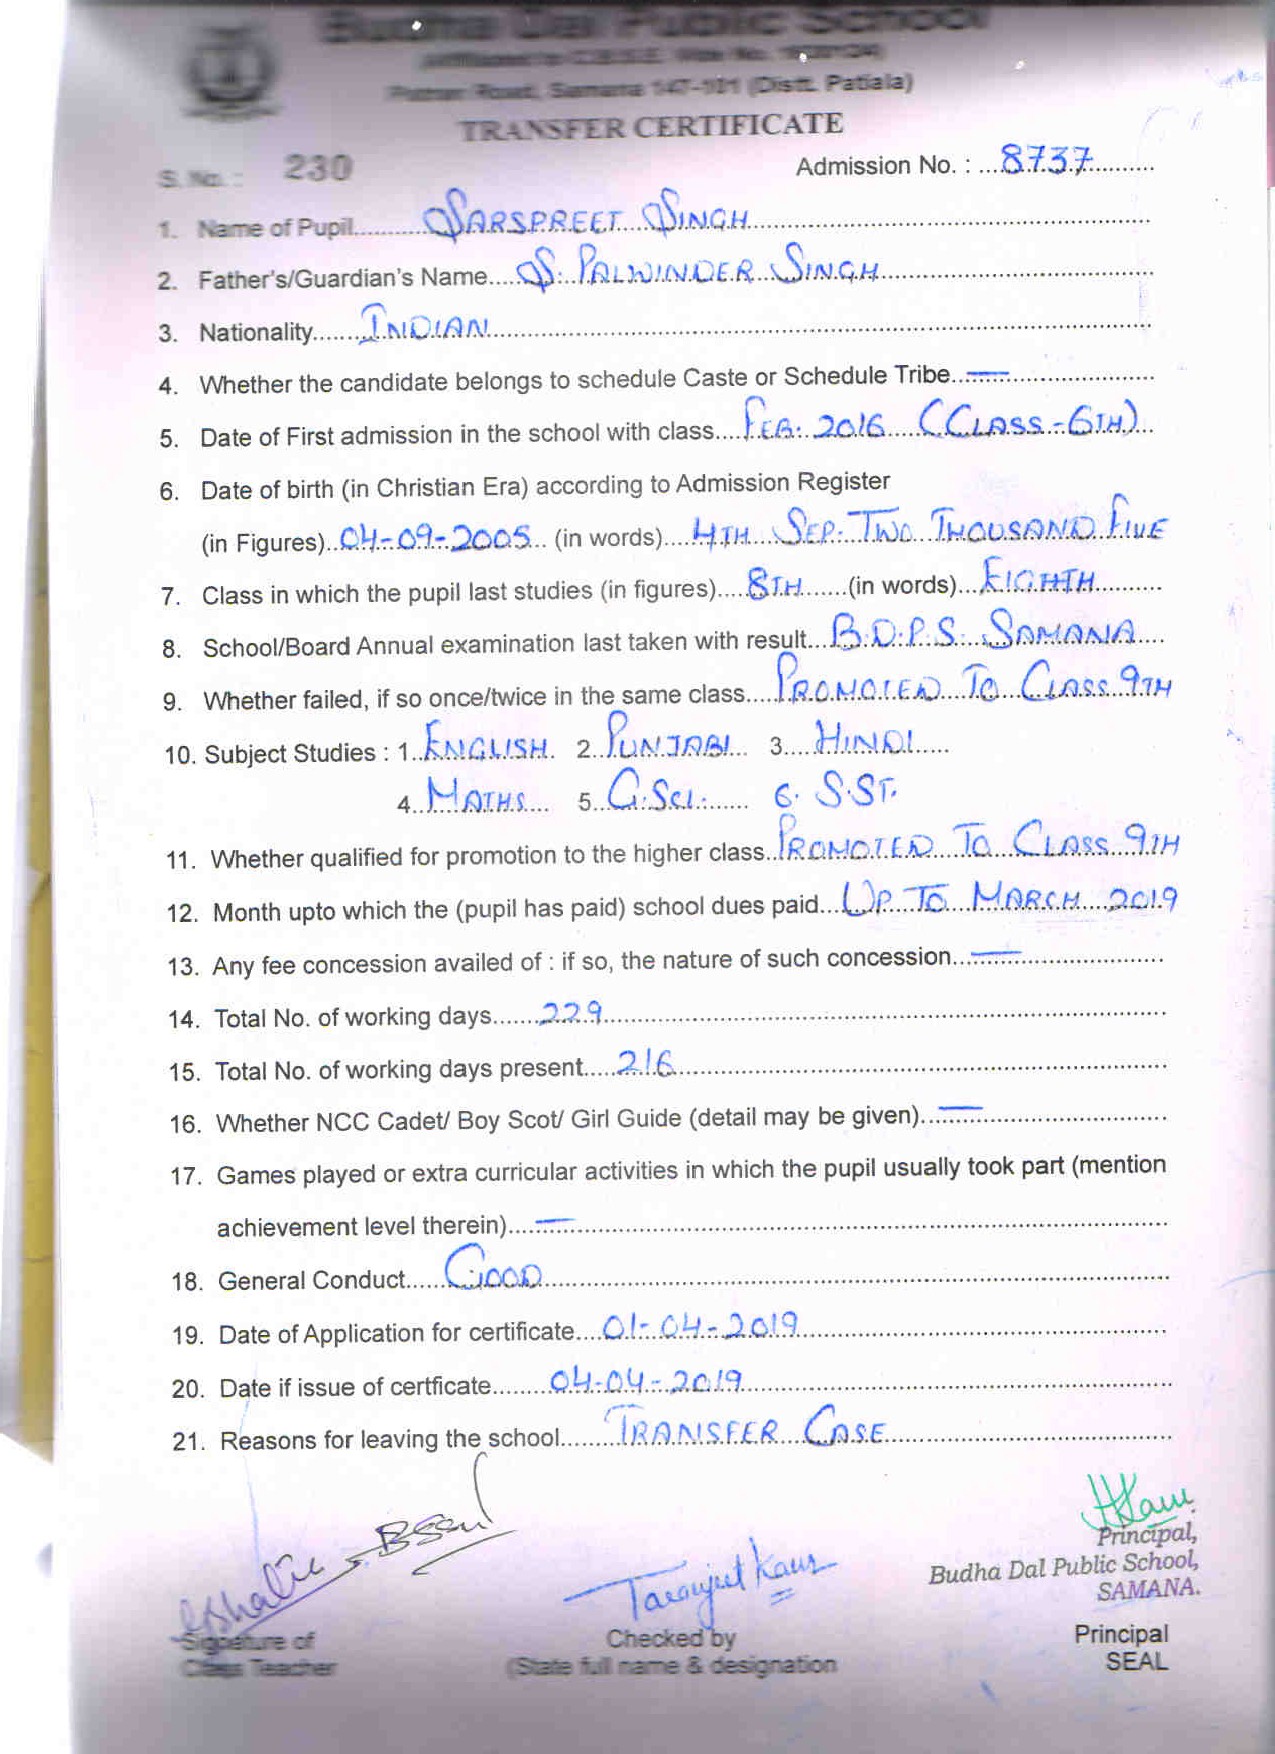 Budha Dal Public School
Patran Road, Samana 147-101 (Distt. Patiala)
TRANSFER CERTIFICATE
S. No. : 230 Admission No. : ...8737...
1. Name of Pupil...SARSPREET SINGH...
2. Father's/Guardian's Name...S. PALWINDER SINGH...
3. Nationality...INDIAN...
4. Whether the candidate belongs to schedule Caste or Schedule Tribe...—...
5. Date of First admission in the school with class...FEB. 2016 (CLASS-6TH)...
6. Date of birth (in Christian Era) according to Admission Register
(in Figures)..04-09-2005... (in words)...4TH SEP. TWO THOUSAND FIVE
7. Class in which the pupil last studies (in figures)...8TH...(in words)...EIGHTH...
8. School/Board Annual examination last taken with result...B.D.P.S. SAMANA...
9. Whether failed, if so once/twice in the same class...PROMOTED TO CLASS 9TH
10. Subject Studies : 1..ENGLISH. 2..PUNJABI... 3...HINDI...
4..MATHS... 5..G.SCI.... 6. S.ST.
11. Whether qualified for promotion to the higher class..PROMOTED TO CLASS 9TH
12. Month upto which the (pupil has paid) school dues paid...UP TO MARCH 2019
13. Any fee concession availed of : if so, the nature of such concession...—...
14. Total No. of working days...229...
15. Total No. of working days present...216...
16. Whether NCC Cadet/ Boy Scot/ Girl Guide (detail may be given)...—...
17. Games played or extra curricular activities in which the pupil usually took part (mention
achievement level therein)...—...
18. General Conduct...GOOD...
19. Date of Application for certificate...01-04-2019...
20. Date if issue of certficate...04-04-2019...
21. Reasons for leaving the school...TRANSFER CASE...
Taranjeet Kaur
Principal,
Budha Dal Public School,
SAMANA.
Signature of Checked by Principal
Class Teacher (State full name & designation SEAL